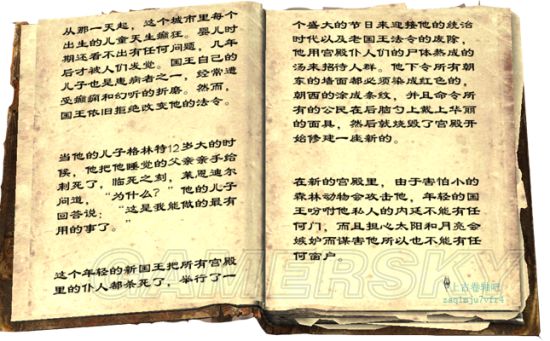 从那一天起，这个城市里每个
出生的儿童天生癫狂。婴儿时
期还看不出有任何问题，几年
后才被人们发觉。国王自己的
儿子也是患病者之一，经常遭
受癫痫和幻听的折磨。然而，
国王依旧拒绝改变他的法令。
当他的儿子格林特12岁大的时
候，他把他睡觉的父亲亲手给
刺死了，临死之刻，莱恩迪尔
问道，“为什么？”他的儿子
回答说：“这是我能做的最有
用的事了。”
这个年轻的新国王把所有宫殿
里的仆人都杀死了，举行了一
个盛大的节日来迎接他的统治
时代以及老国王法令的废除，
他用宫殿仆人们的尸体熬成的
汤来招待人群。他下令所有朝
东的墙面都必须染成红色的，
朝西的涂成条纹，并且命令所
有的公民在后脑勺上戴上华丽
的面具，然后就烧毁了宫殿开
始修建一座新的。
在新的宫殿里，由于害怕小的
森林动物会攻击他，年轻的国
王吩咐他私人的内廷不能有任
何门，而且担心太阳和月亮会
嫉妒而谋害他所以也不能有任
何窗户。
GAMERSKY
上古卷轴吧
zaq1mju7vfr4